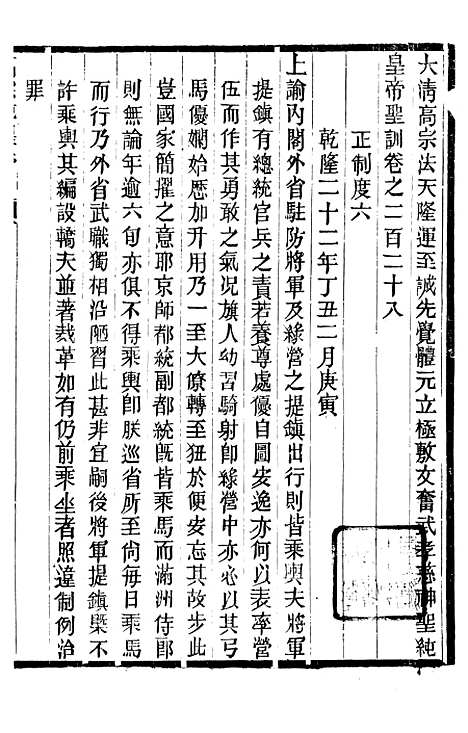 大淸高宗法天隆運至誠先覺體元立極敷文奮武孝慈神聖純
皇帝聖訓卷之二百二十八
正制度六
乾隆二十二年丁丑二月庚寅
上諭內閣外省駐防將軍及綠營之提鎭出行則皆乘輿夫將軍
提鎭有總統官兵之責若養尊處優自圖安逸亦何以表率營
伍而作其勇敢之氣況旗人幼習騎射卽綠營中亦必以其弓
馬優嫺始歷加升用乃一至大僚轉至狃於便安忘其故步此
豈國家簡擢之意耶京師都統副都統旣皆乘馬而滿洲侍郞
則無論年逾六旬亦俱不得乘輿卽朕巡省所至尙每日乘馬
而行乃外省武職獨相沿陋習此甚非宜嗣後將軍提鎭槩不
許乘輿其編設轎夫並著裁革如有仍前乘坐者照違制例治
罪